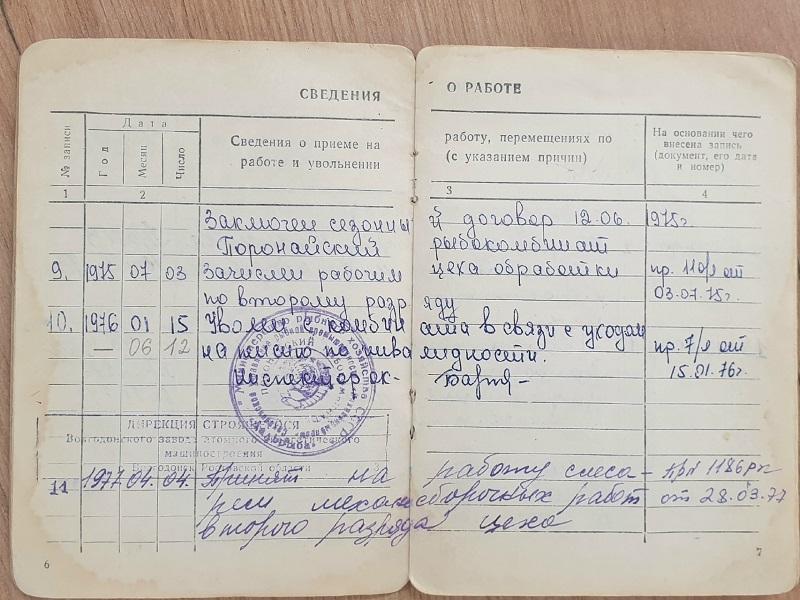 СВЕДЕНИЯ О РАБОТЕ
№ записи Дата Сведения о приеме на работу, перемещениях по На основании чего
Год Месяц Число работе и увольнении (с указанием причин) внесена запись
(документ, его дата
и номер)
1 2 3 4
Заключен сезонный договор 12.06. 1975г
Поронайский рыбокомбинат
9. 1975 07 03 Зачислен рабочим цеха обработки пр. 110/л от
по второму разряду 03.07.75г.
10. 1976 01 15 Уволен с комбината в связи с уходом пр. 7/л от
— 06 12 на пенсию по инвалидности. 15.01.76г.
инспектор ок-
ДИРЕКЦИЯ СТРОЯЩЕГОСЯ
Волгодонского завода атомного энергетического
машиностроения
г. Волгодонск Ростовской области
11 1977 04. 04. Принят на работу слеса- Пр№ 1186рк
рем механосборочных работ от 28.03.77
второго разряда цеха
6 7